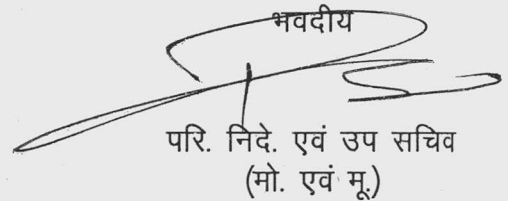 भवदीय
परि. निदे. एवं उप सचिव
(मो. एवं मू.)